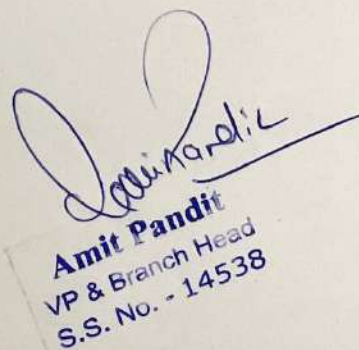 Amit Pandit
VP & Branch Head
S.S. No. - 14538